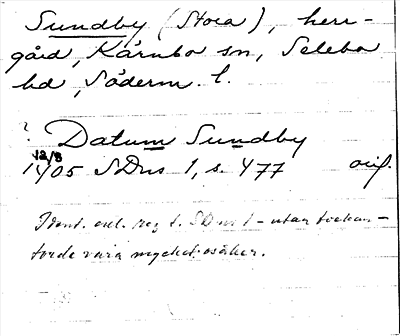 Sundby (Stora), herr-
gård, Kärnbo sn, Selebo
hd, Söderm. l.
? Datum Sundby
12/8
1405 SDns 1, s. 477 orig.
Ident. enl. reg t. SDns 1 - utan tvekan -
torde vara mycket osäker.